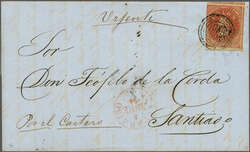 Urgente
Sor
Don Teófilo de la Cerda
Por el Cartero
Santiago